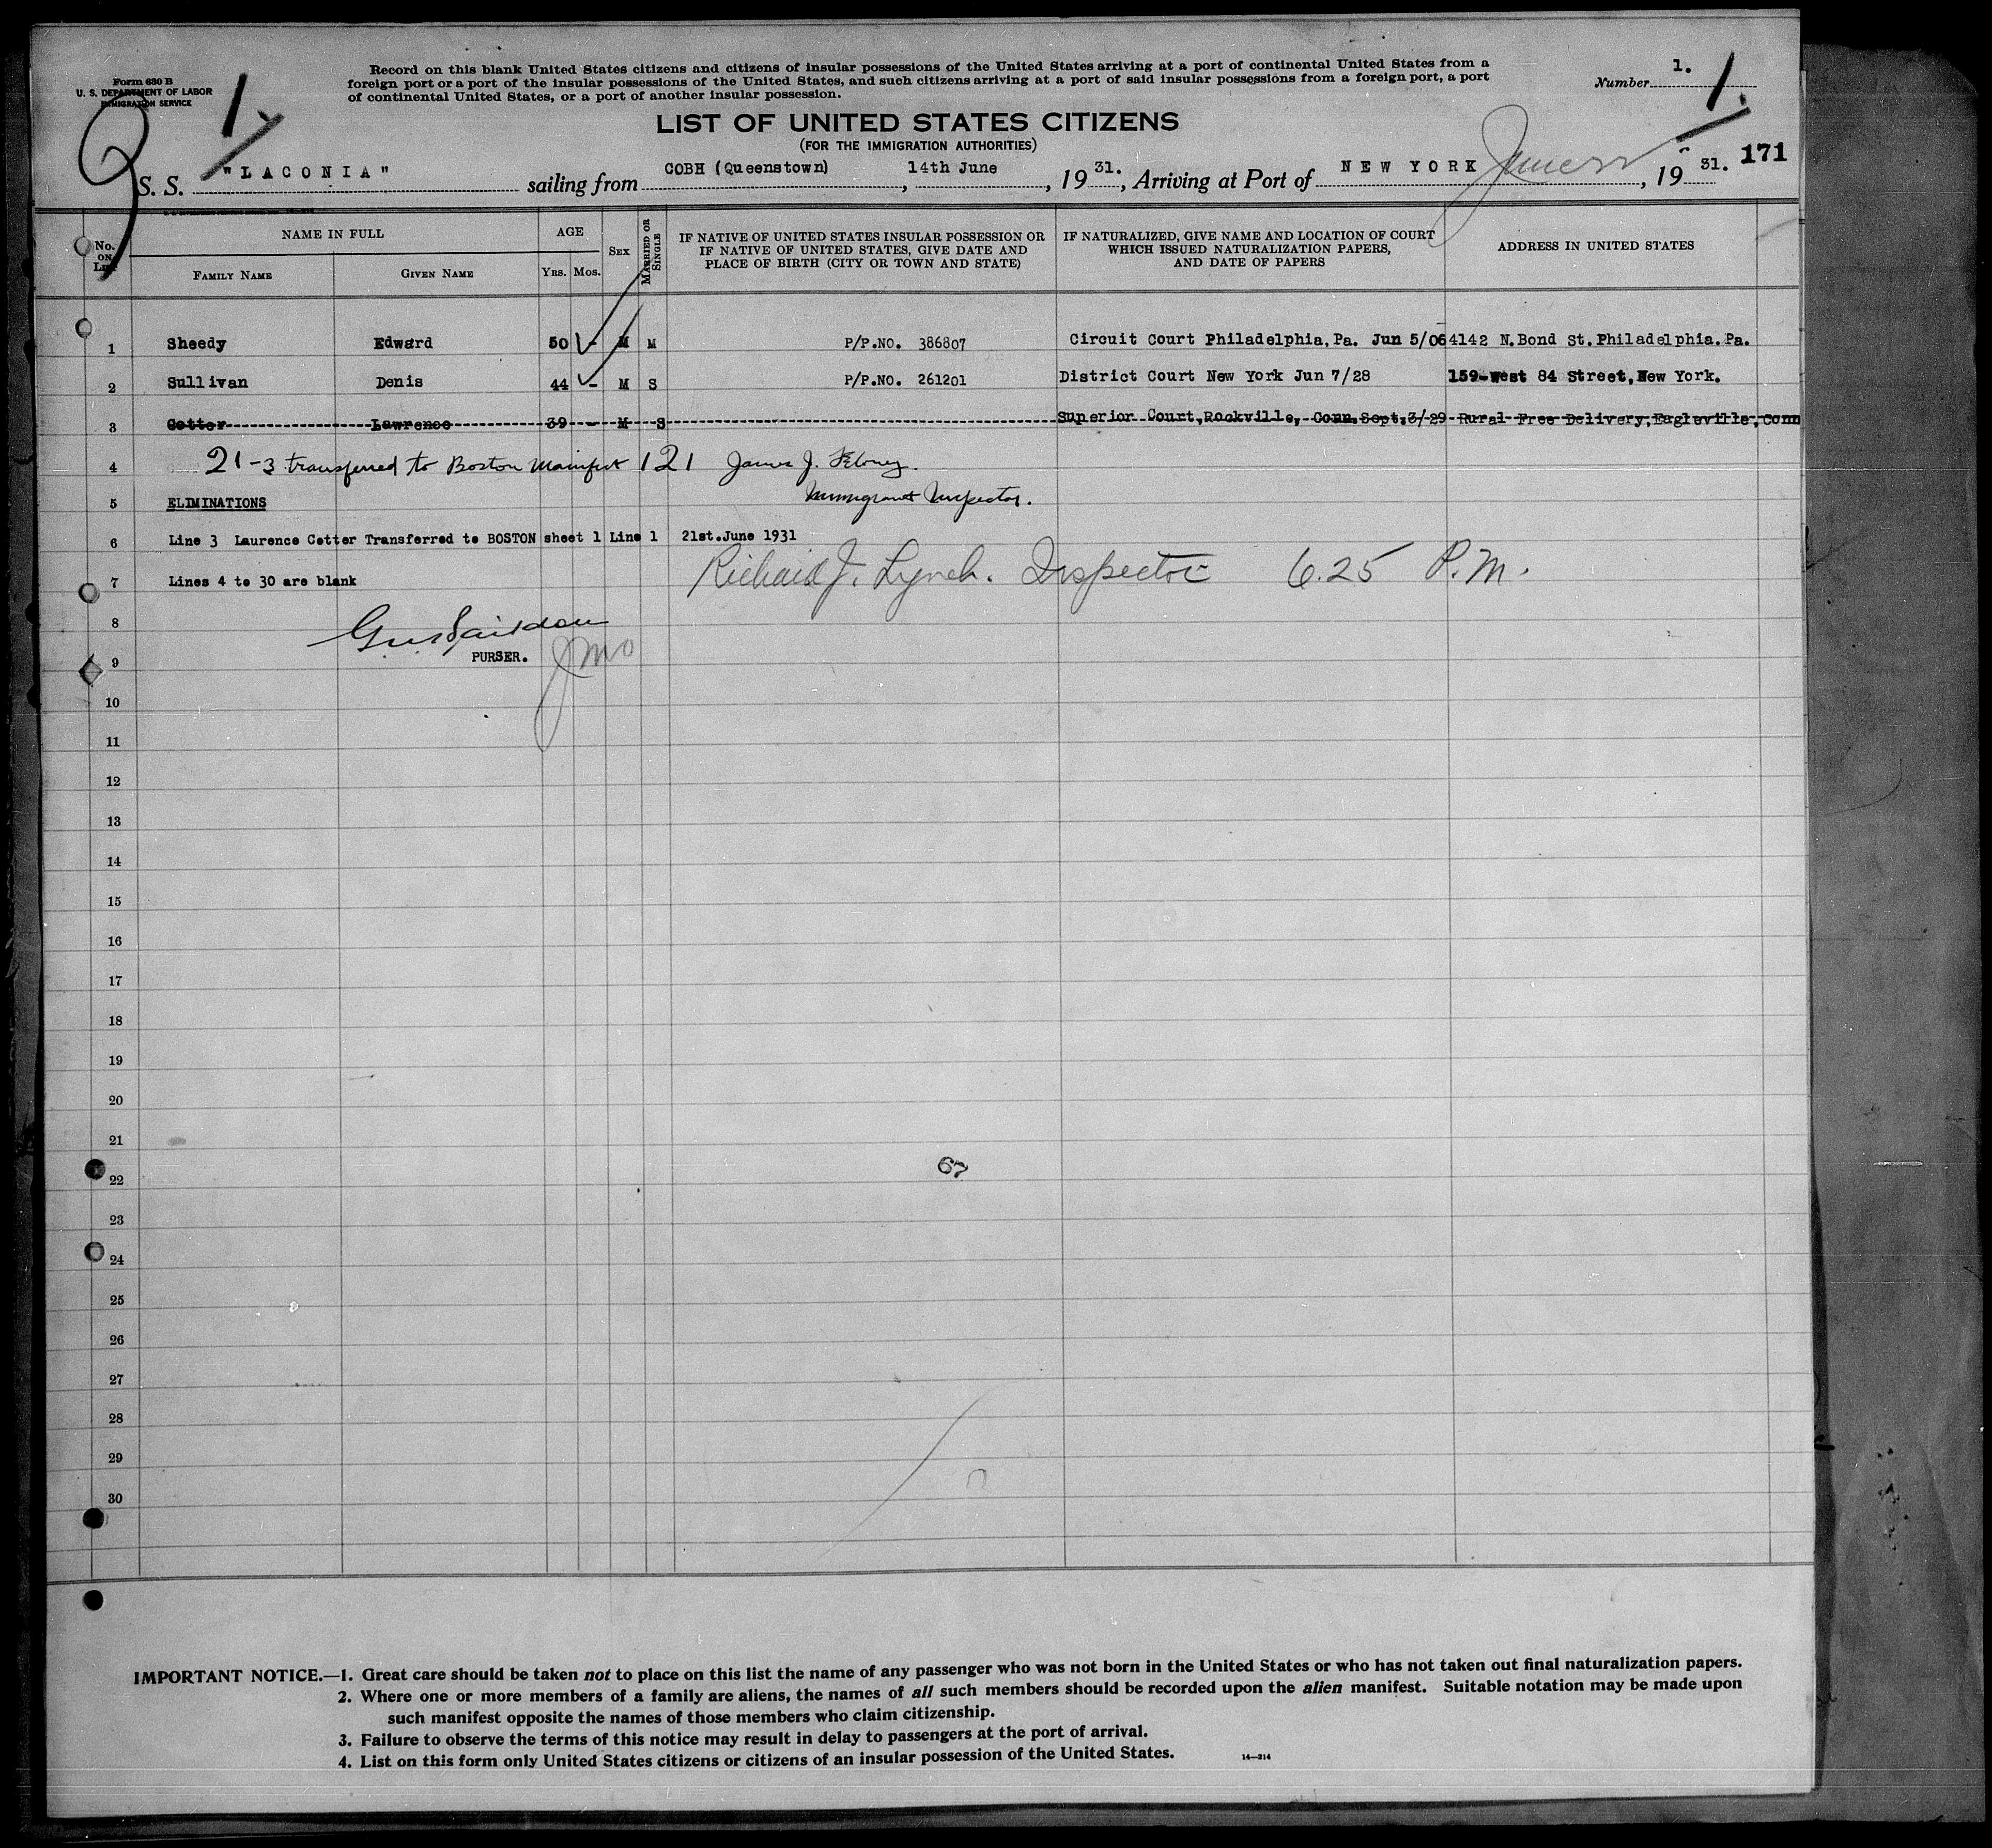 Form 630 B
U. S. DEPARTMENT OF LABOR
IMMIGRATION SERVICE
1.
Record on this blank United States citizens and citizens of insular possessions of the United States arriving at a port of continental United States from a
foreign port or a port of the insular possessions of the United States, and such citizens arriving at a port of said insular possessions from a foreign port, a port
of continental United States, or a port of another insular possession.
Number 1.
1.
LIST OF UNITED STATES CITIZENS
(FOR THE IMMIGRATION AUTHORITIES)
171
S. S. "LACONIA" sailing from COBH (Queenstown), 14th June, 19 31., Arriving at Port of NEW YORK, 19 31.
No. ON LIST
NAME IN FULL
FAMILY NAME
GIVEN NAME
AGE
Yrs. Mos.
SEX
MARRIED OR SINGLE
IF NATIVE OF UNITED STATES INSULAR POSSESSION OR
IF NATIVE OF UNITED STATES, GIVE DATE AND
PLACE OF BIRTH (CITY OR TOWN AND STATE)
IF NATURALIZED, GIVE NAME AND LOCATION OF COURT
WHICH ISSUED NATURALIZATION PAPERS,
AND DATE OF PAPERS
ADDRESS IN UNITED STATES
1 Sheedy Edward 50 - M M P/P.NO. 386807 Circuit Court Philadelphia, Pa. Jun 5/06 4142 N.Bond St.Philadelphia.Pa.
2 Sullivan Denis 44 - M S P/P.NO. 261201 District Court New York Jun 7/28 159-west 84 Street, New York.
3 Cotter Lawrence 39 - M S Superior Court,Rockville, Conn.Sept,3/29 Rural Free Delivery,Eagleville, Conn
4 21-3 transferred to Boston Manifest 121 James J.
Immigrant Inspector.
5 ELIMINATIONS
6 Line 3 Laurence Cotter Transferred to BOSTON sheet 1 Line 1 21st.June 1931
7 Lines 4 to 30 are blank
Richard J. Lynch. Inspector 6.25 P.M.
8
PURSER.
9
10
11
12
13
14
15
16
17
18
19
20
21
67
22
23
24
25
26
27
28
29
30
IMPORTANT NOTICE.—1. Great care should be taken not to place on this list the name of any passenger who was not born in the United States or who has not taken out final naturalization papers.
2. Where one or more members of a family are aliens, the names of all such members should be recorded upon the alien manifest. Suitable notation may be made upon
such manifest opposite the names of those members who claim citizenship.
3. Failure to observe the terms of this notice may result in delay to passengers at the port of arrival.
4. List on this form only United States citizens or citizens of an insular possession of the United States.
14—214